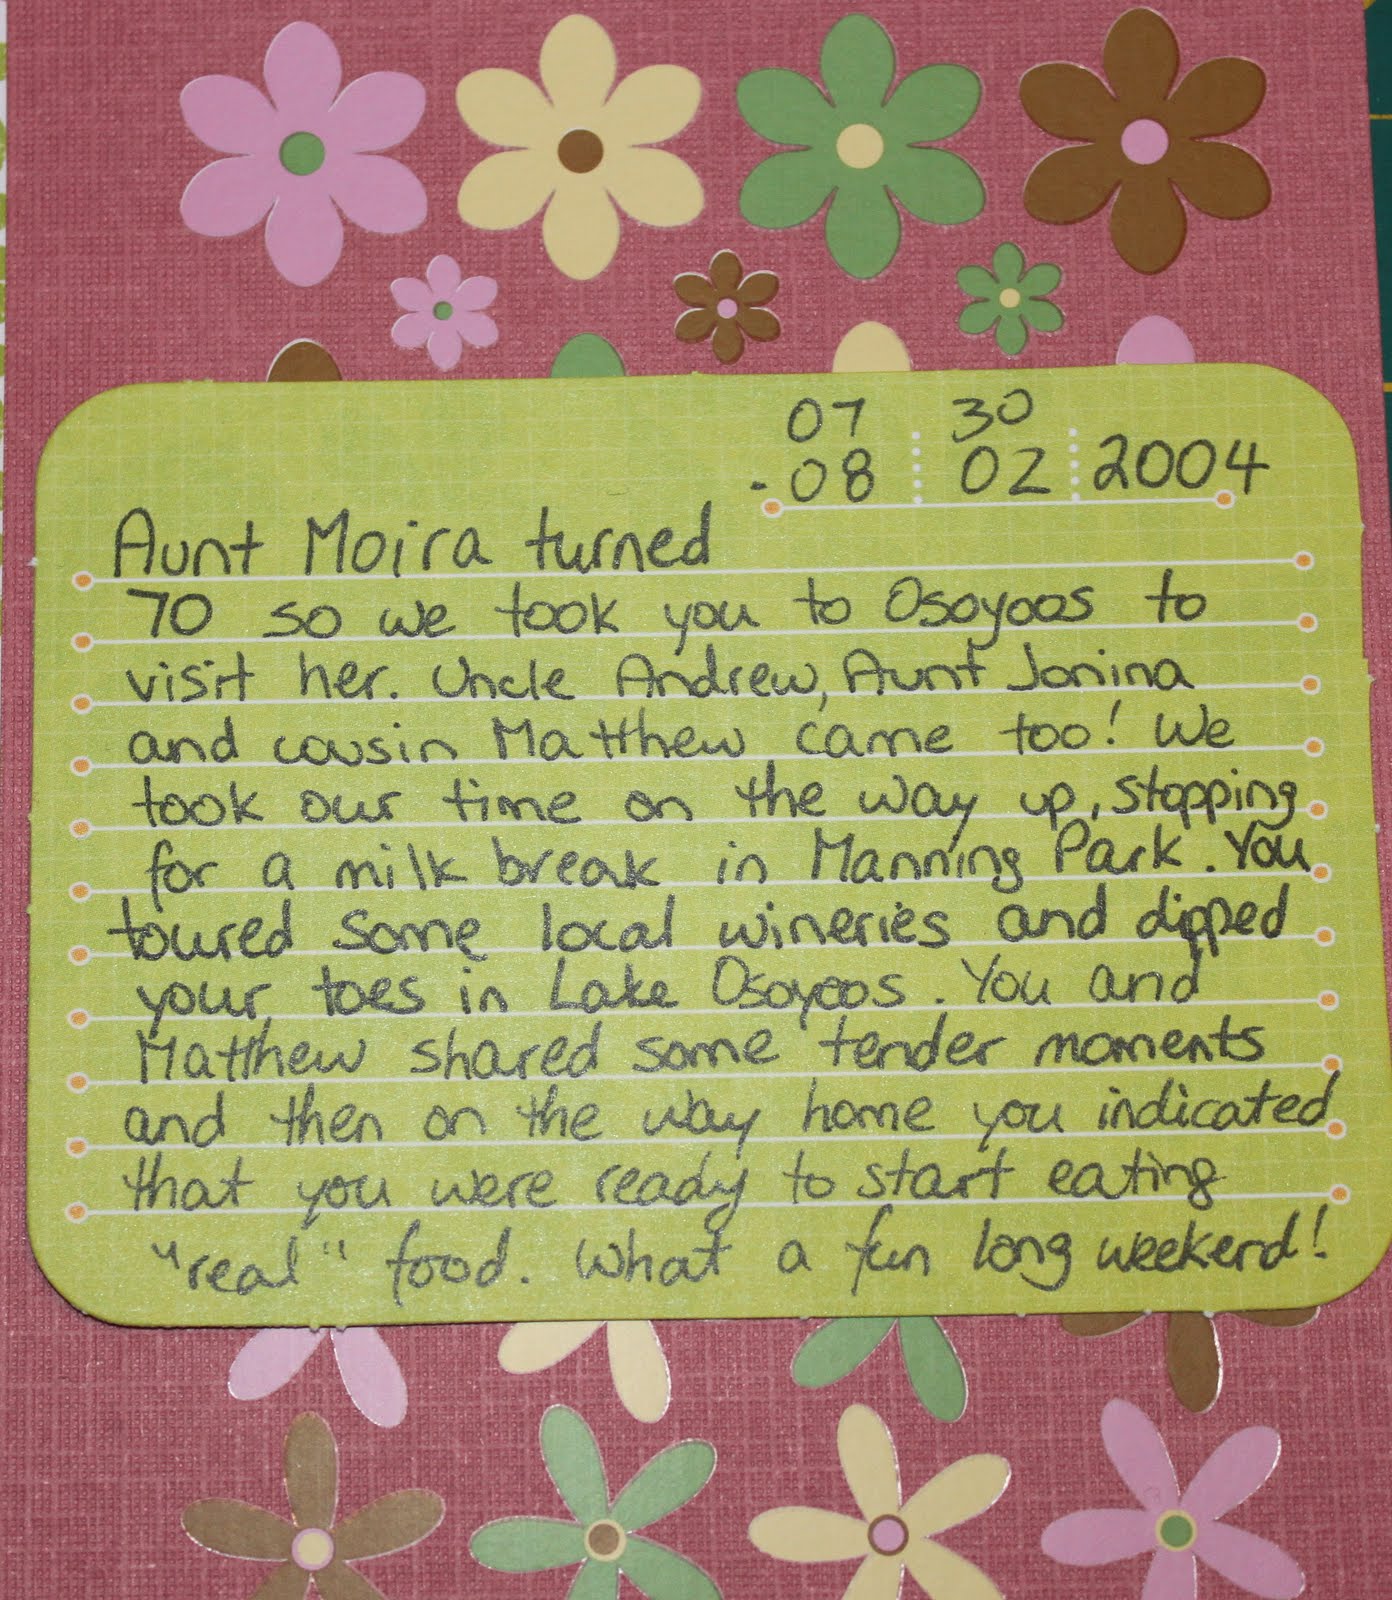 07 30
-08 02 2004
Aunt Moira turned
70 so we took you to Osoyoos to
visit her. Uncle Andrew, Aunt Jonina
and cousin Matthew came too! We
took our time on the way up, stopping
for a milk break in Manning Park. You
toured some local wineries and dipped
your toes in Lake Osoyoos. You and
Matthew shared some tender moments
and then on the way home you indicated
that you were ready to start eating
"real" food. What a fun long weekend!